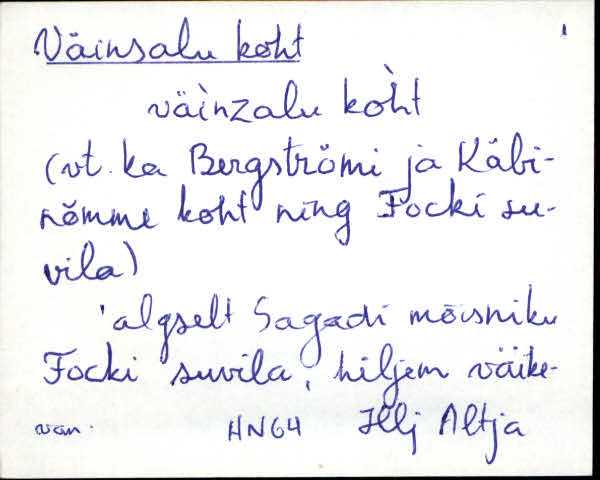 Väinsalu koht
väìnzalu kòht
(vt. ka Bergströmi ja Käbi-
nõmme koht ning Focki su-
vila)
'algselt Sagadi mõisniku
Focki suvila, hiljem väike-
van. HN64 Hlj Altja